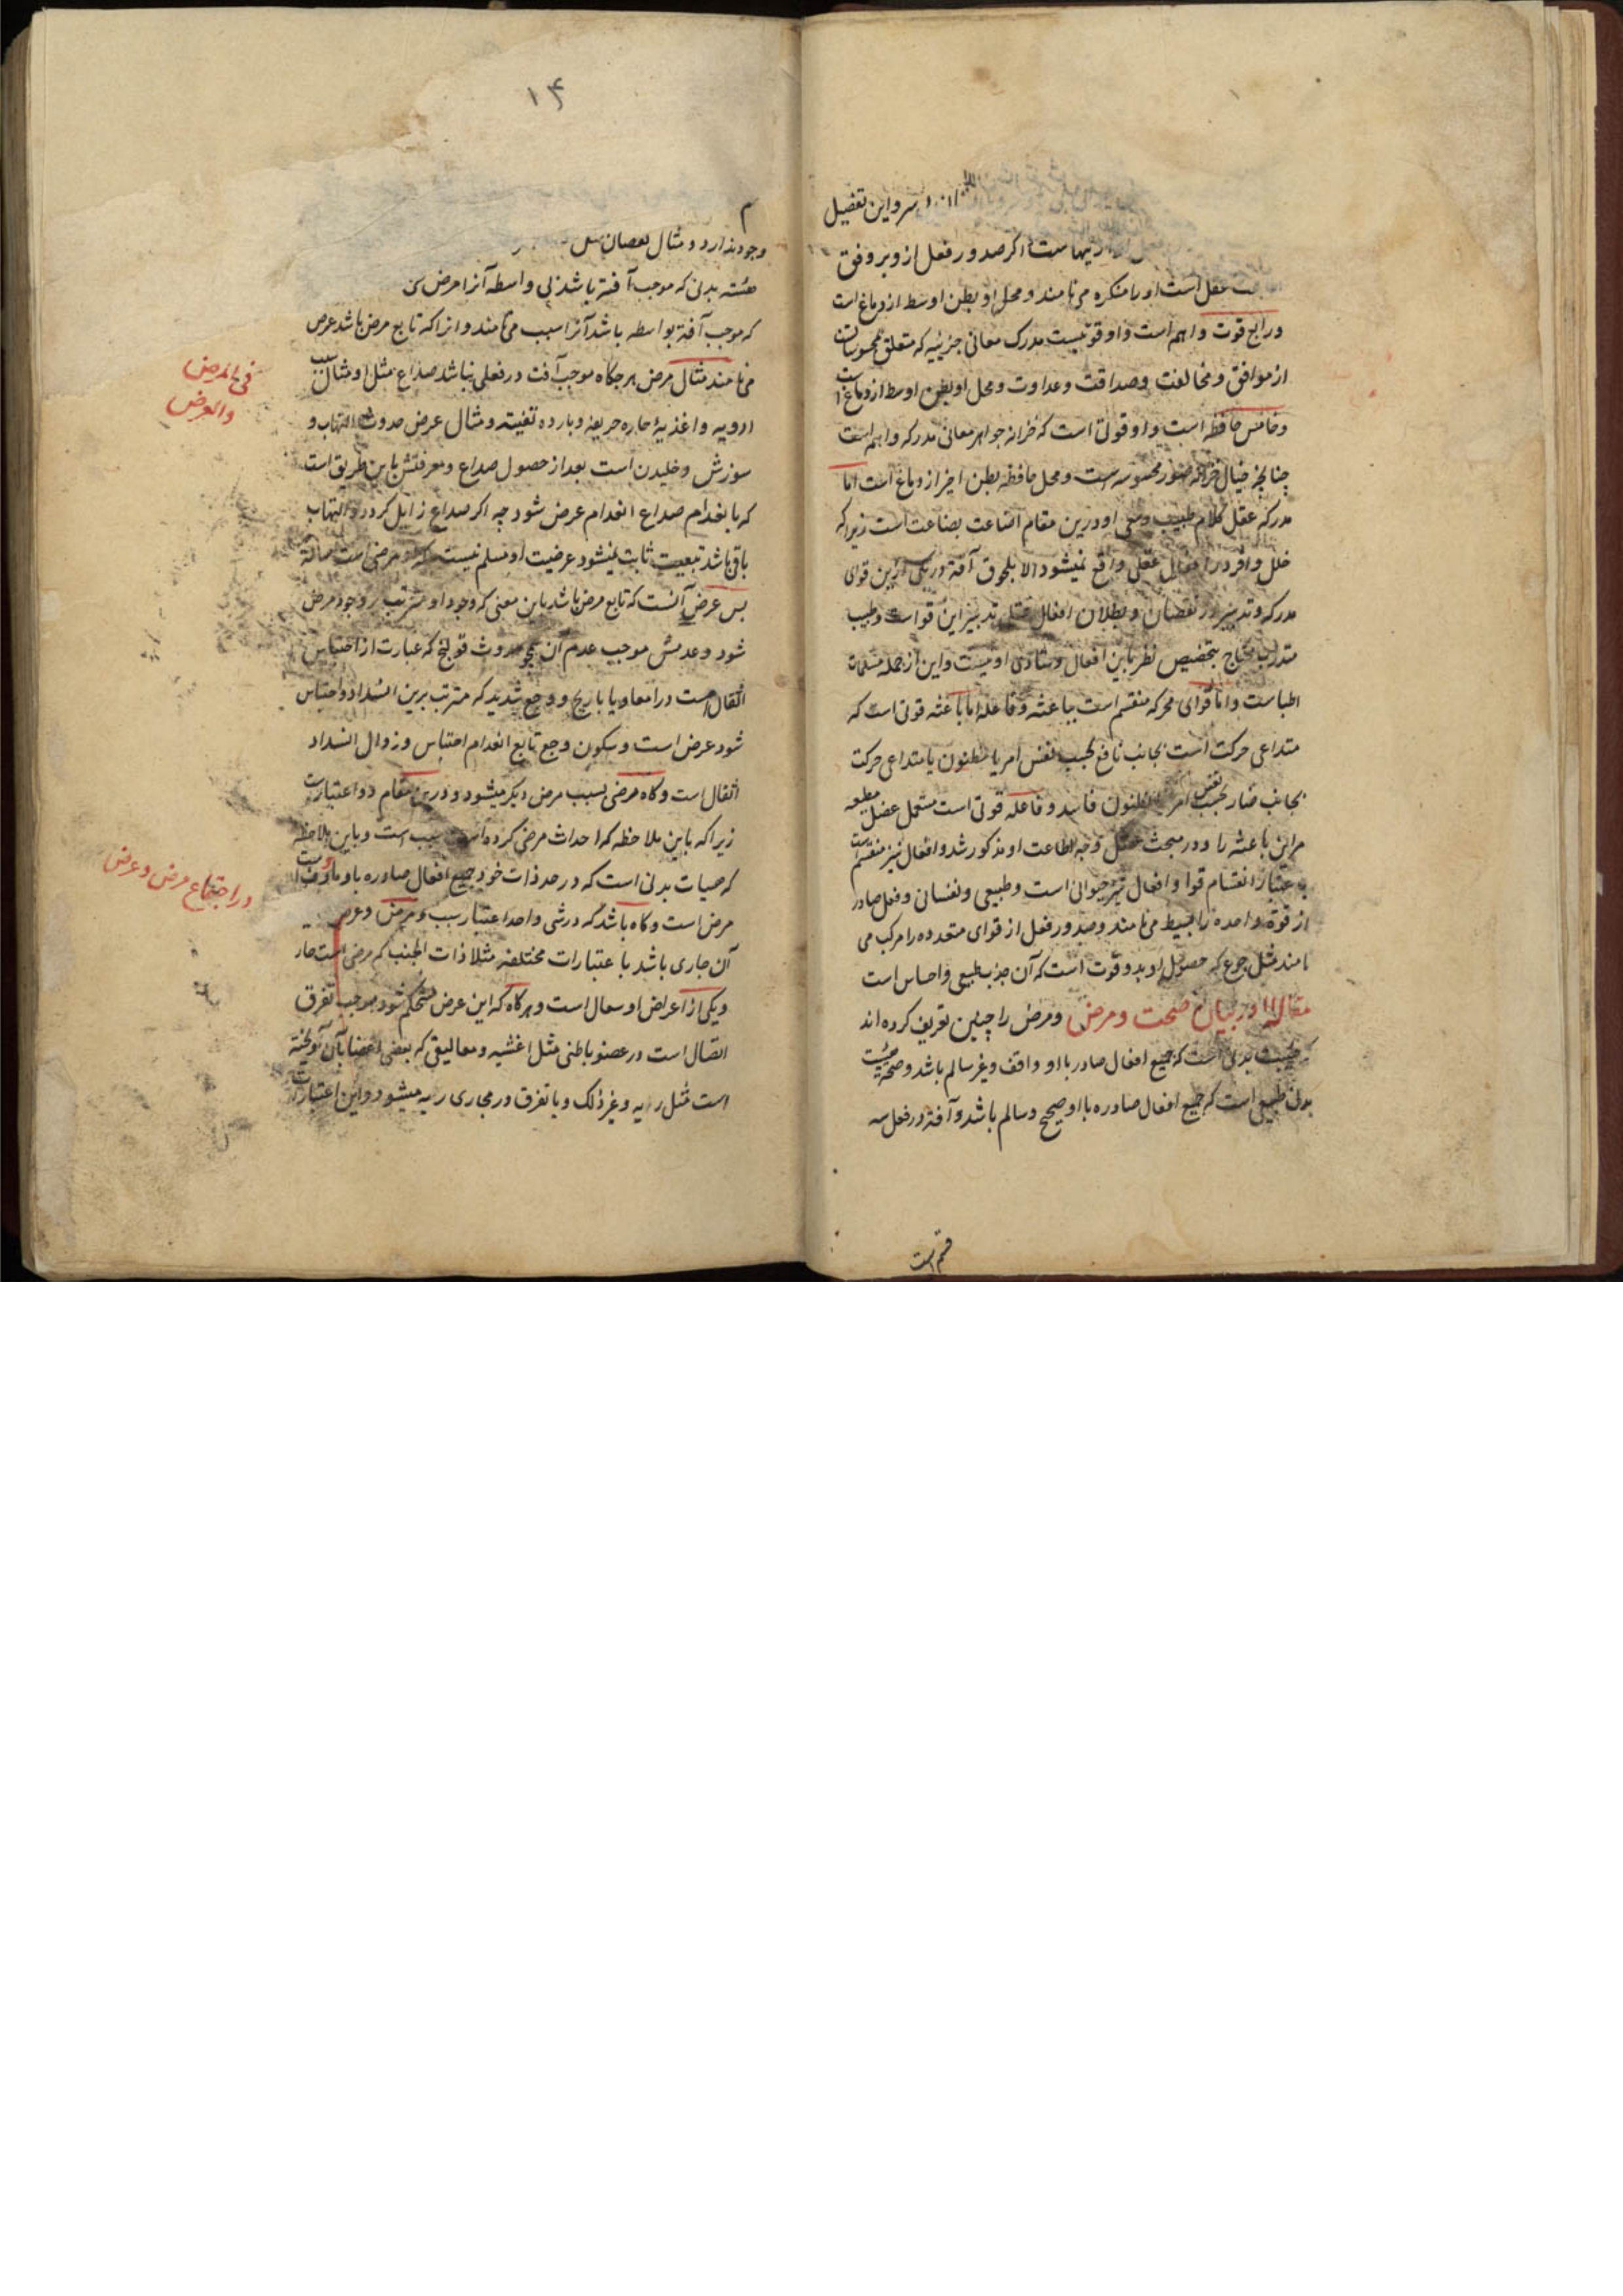 و این تفصیل
اگر صدور فعل ازو بر وفق
عقل است او را متفکره می نامند و محل او بطن اوسط از دماغ است
و رابع قوت واهم است و او قوتیست مدرک معانی جزئیه که متعلق محسوسات
از موافق و مخالفت و صداقت و عداوت و محل او بطن اوسط از دماغ است
و خامس حافظه است و او قوتی است که خزانه جواهر معانی مدرکه واهم است
چنانچه خیال خزانه صور محسوسه است و محل حافظه بطن اخیر از دماغ است اما
مدرکه عقل کلام طبیب و سعی او درین مقام اضاعت بضاعت است زیرا که
خلل وافر در افعال عقلی واقع نمیشود الا بلحوق آفة در یکی ازین قوای
مدرکه و تدبیر در نقصان و بطلان افعال تدبیر این قوا است و طبیب
متدرب محتاج بتخصیص نظر باین افعال و نیست و این از جمله مسلمات
اطباست و اما قوای محرکه منقسم است بباعثه و فاعله اما باعثه قوتی است که
متداعی حرکت است بجانب نافع بحسب نفس امر یا مظنون یا متداعی حرکت
بجانب ضار بحسب نفس امر یا مظنون فاسد و فاعله قوتی است مطیعه
مر این باعثه را و در مبحث عضل وجه اطاعت او مذکور شد و افعال نیز منقسم است
به اعتبار انقسام قوا و افعال نیز حیوانی است و طبیعی و نفسانی و فعل صادر
از قوة واحده را بسیط می نامند و صدور فعل از قوای متعدده را مرکب می
نامند مثل جوع که حصول او بدو قوت است که آن جذب طبیعی و احساس است
مقاله در بیان صحت و مرض و مرض را چنین تعریف کرده اند
که هیئت بدنی است که جمیع افعال صادر با او واقف و غیر سالم باشد و صحة هیئت
بدنی طبیعی است که جمیع افعال صادره با او صحیح و سالم باشد و آفة در فعل سه
قسم است
۱۴
وجود ندارد و مثال نقصان
هیئته بدنی که موجب آفة باشد بی واسطه آنرا مرض
که موجب آفة بواسطه باشد آنرا سبب می نامند و انرا که تابع مرض باشد عرض
می نامند مثال مرض هر جگاه موجب آفت در فعلی باشد صداع مثل او مثال سبب
ادویه و اغذیه حاره حریفه و بارده تفیته و مثال عرض حدوث التهاب و
سوزش و خلیدن است بعد از حصول صداع و معرفتش باین طریق است
که بانعدام صداع انعدام عرض شود چه اگر صداع زایل گردد و التهاب
باقی باشد تبعیت ثابت نمیشود عرضیت او مسلم نیست
بس عرض آنست که تابع مرض باشد باین معنی که وجود او مترتب بر وجود مرض
شود و عدمش موجب عدم آن همچو حدوث قولنج که عبارت از احتباس
اثقال است در امعا و یا با ریح و وجع شدید که مترتب برین انسداد و احتباس
شود عرض است و سکون وجع تابع انعدام احتباس و زوال انسداد
اثقال است و کاه مرضی بسبب مرض دیگر میشود و درین مقام دو اعتبار است
زیرا که باین ملاحظه که احداث مرض کرده است سبب است و باین ملاحظه
که هیات بدنی است که در حد ذات خود جمیع افعال صادره با او ماوف است
مرض است و کاه باشد که در شی واحد اعتبار سبب و مرض و عرض
آن جاری باشد باعتبارات مختلفه مثلا ذات الجنب که مرضی است حار
و یکی از اعراض او سعال است و هر گاه که این عرض مستحکم شود موجب تفرق
اتصال است در عضو باطنی مثل اغشیه و معالیقی که بعضی اعضا بآن آویخته
است مثل ریه و غیر ذلک و یا تفرق در مجاری ریه میشود و این اعتبارات
فی المرض
والعرض
در اجتماع مرض و عرض